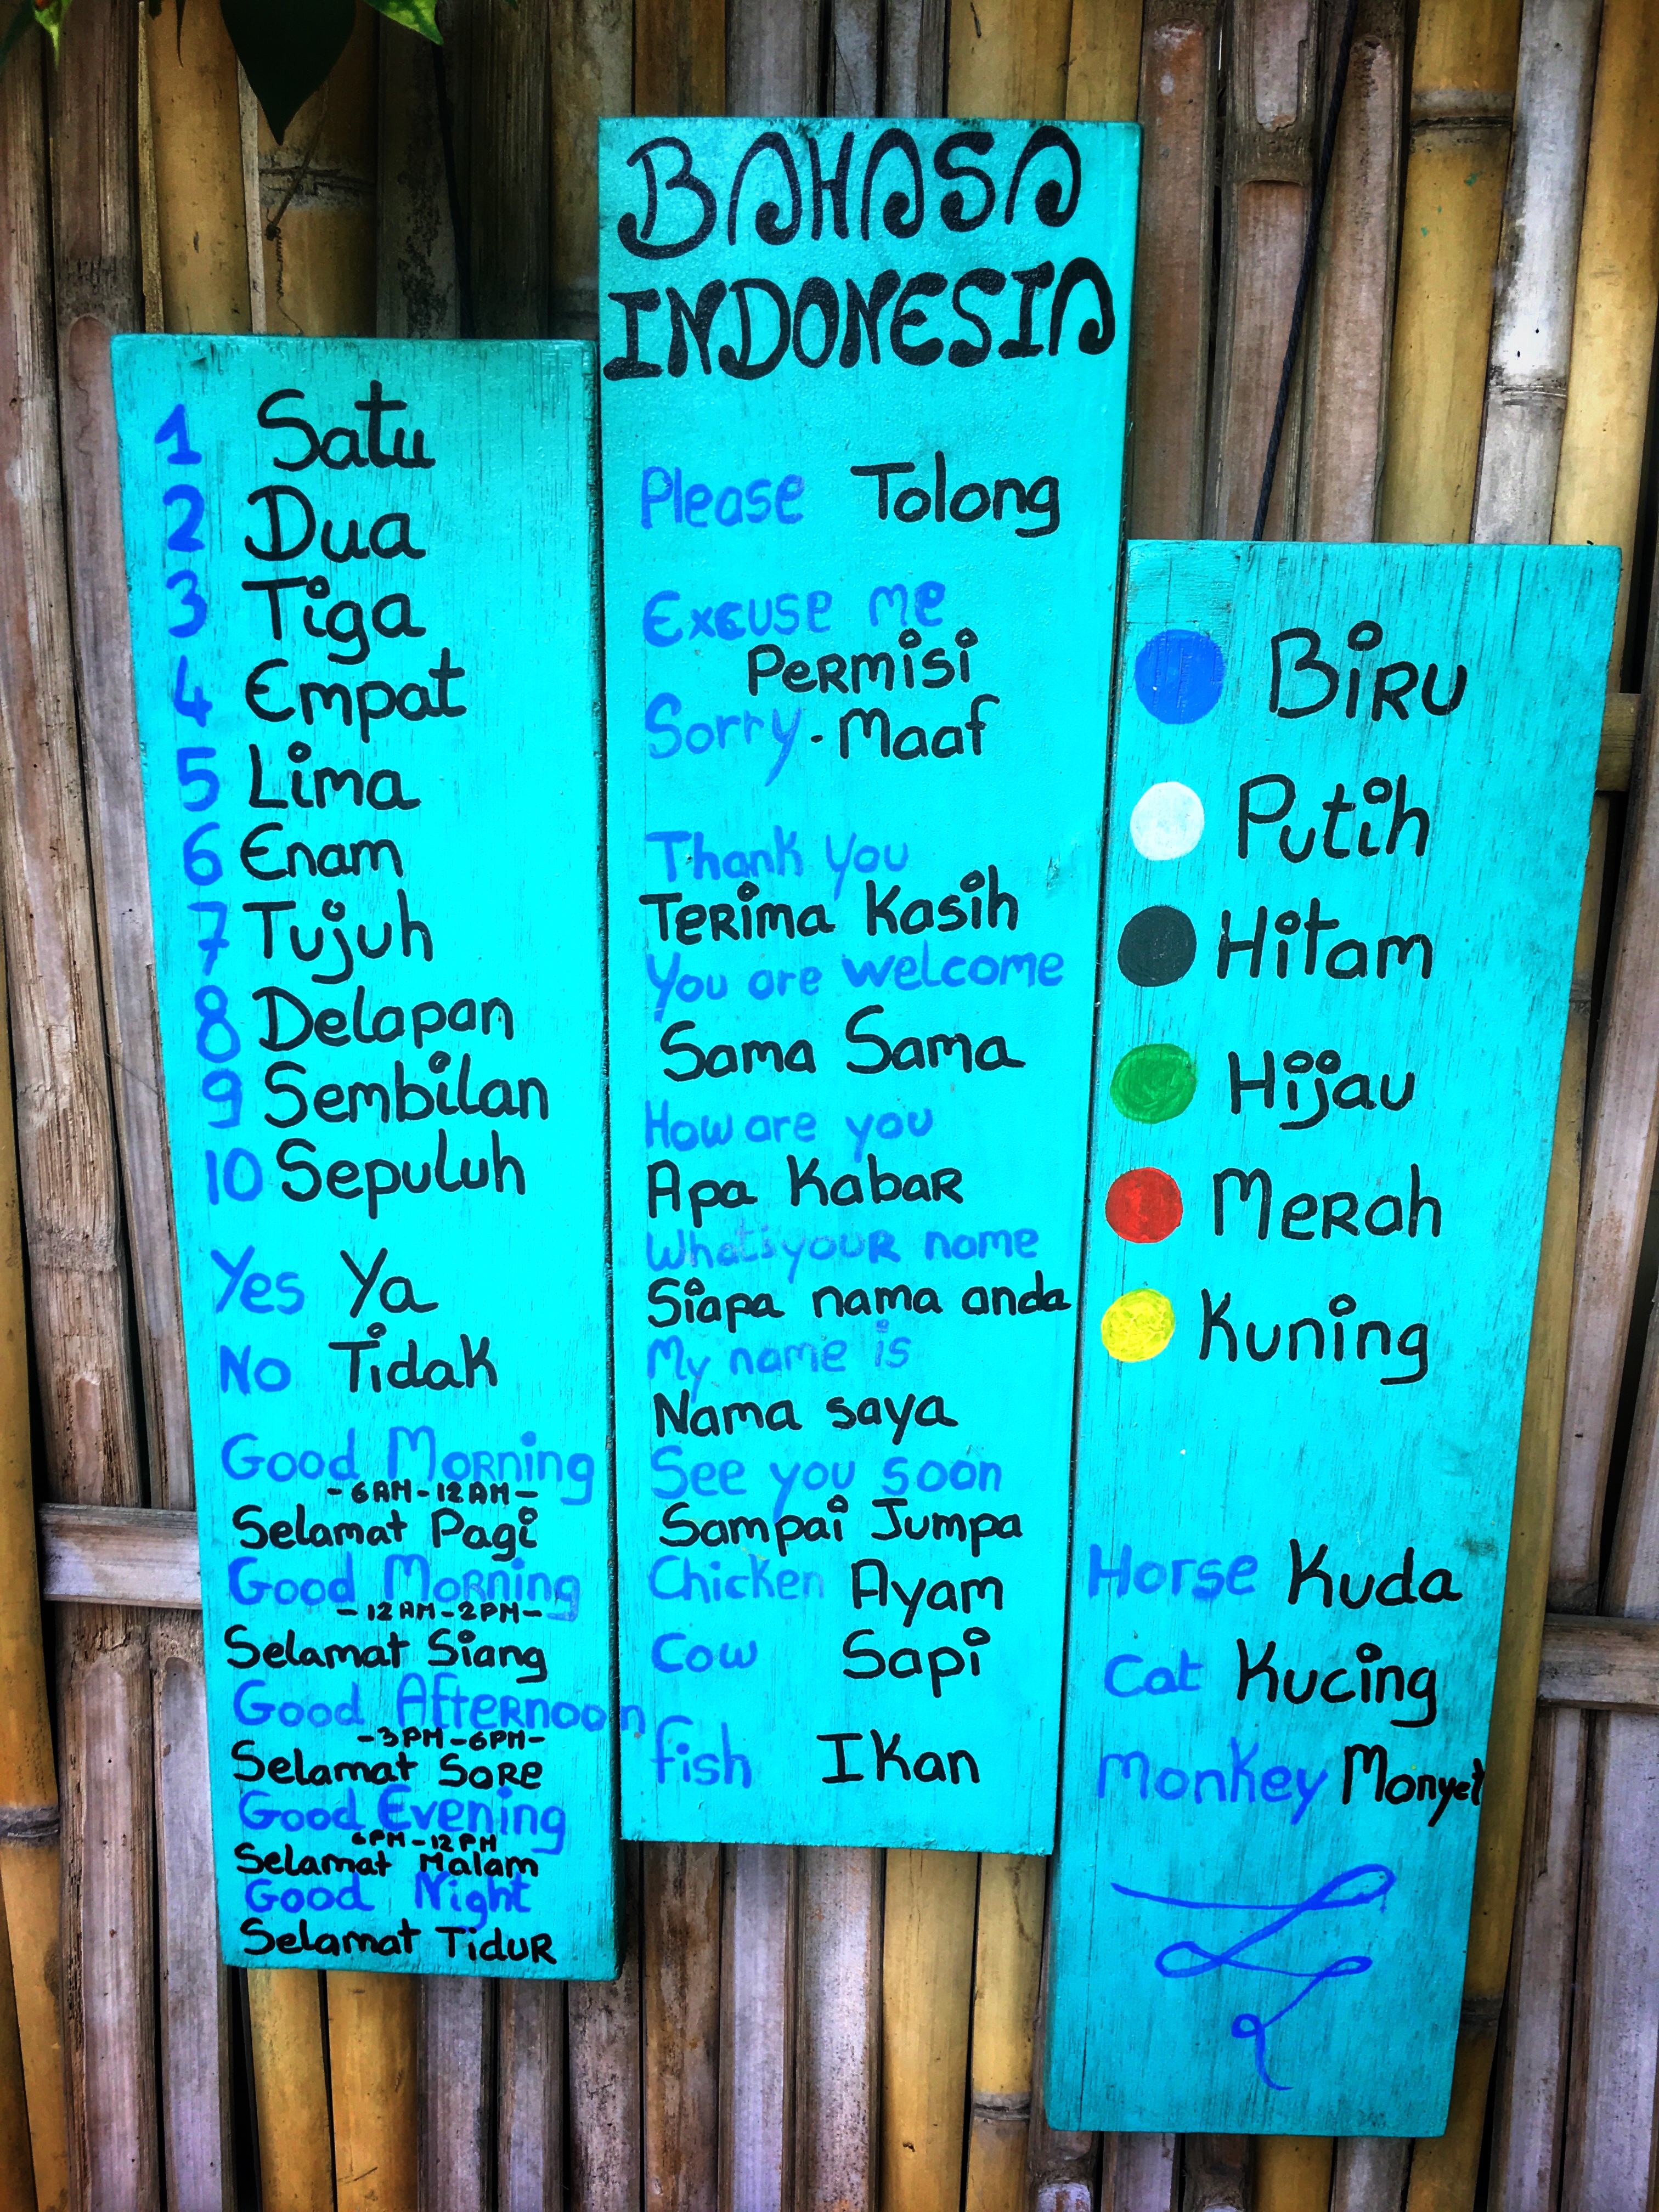 1 Satu
2 Dua
3 Tiga
4 Empat
5 Lima
6 Enam
7 Tujuh
8 Delapan
9 Sembilan
10 Sepuluh
Yes Ya
No Tidak
Good Morning
- 6 AM - 12 AM -
Selamat Pagi
Good Morning
- 12 AM - 2 PM -
Selamat Siang
Good Afternoon
- 3 PM - 6 PM -
Selamat Sore
Good Evening
6 PM - 12 PM
Selamat Malam
Good Night
Selamat Tidur
BAHASA
INDONESIA
Please Tolong
Excuse me
Permisi
Sorry - Maaf
Thank you
Terima Kasih
You are welcome
Sama Sama
How are you
Apa Kabar
What is your name
Siapa nama anda
My name is
Nama saya
See you soon
Sampai Jumpa
Chicken Ayam
Cow Sapi
Fish Ikan
Biru
Putih
Hitam
Hijau
Merah
Kuning
Horse Kuda
Cat Kucing
Monkey Monyet